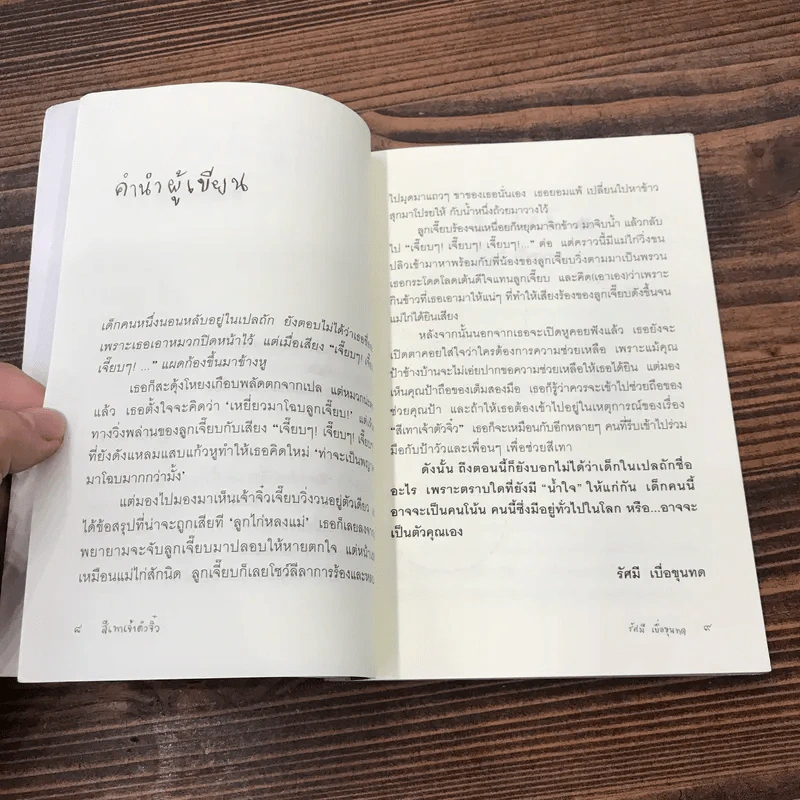 คำนำผู้เขียน
เด็กคนหนึ่งนอนหลับอยู่ในเปลถัก ยังตอบไม่ได้ว่าเธอชื่อ
เพราะเธอเอาหมวกปิดหน้าไว้ แต่เมื่อเสียง “เจี๊ยบๆ! เจี๊ยบ
เจี๊ยบๆ! ...” แผดก้องขึ้นมาข้างหู
เธอก็สะดุ้งโหยงเกือบพลัดตกจากเปล แต่หมวก
แล้ว เธอตั้งใจจะคิดว่า ‘เหยี่ยวมาโฉบลูกเจี๊ยบ!’ แต่
ทางวิ่งพล่านของลูกเจี๊ยบกับเสียง “เจี๊ยบๆ! เจี๊ยบๆ! เจี๊ยบ
ที่ยังดังแหลมแสบแก้วหูทำให้เธอคิดใหม่ ‘ท่าจะเป็น
มาโฉบมากกว่ามั้ง’
แต่มองไปมองมาเห็นเจ้าจิ๋วเจี๊ยบวิ่งวนอยู่ตัวเดียว
ได้ข้อสรุปที่น่าจะถูกเสียที ‘ลูกไก่หลงแม่’ เธอก็เลยลงจาก
พยายามจะจับลูกเจี๊ยบมาปลอบให้หายตกใจ แต่หน้า
เหมือนแม่ไก่สักนิด ลูกเจี๊ยบก็เลยโชว์ลีลาการร้องและ
๘ สีเทาเจ้าตัวจิ๋ว
ไปมุดมาแถวๆ ขาของเธอนั่นเอง เธอยอมแพ้ เปลี่ยนไปหาข้าว
สุกมาโปรยให้ กับน้ำหนึ่งถ้วยมาวางไว้
ลูกเจี๊ยบร้องจนเหนื่อยก็หยุดมาจิกข้าว มาจิบน้ำ แล้วกลับ
ไป “เจี๊ยบๆ! เจี๊ยบๆ! เจี๊ยบๆ!...” ต่อ แต่คราวนี้มีแม่ไก่วิ่งขน
ปลิวเข้ามาหาพร้อมกับพี่น้องของลูกเจี๊ยบวิ่งตามมาเป็นพรวน
เธอกระโดดโลดเต้นดีใจแทนลูกเจี๊ยบ และคิด(เอาเอง)ว่าเพราะ
กินข้าวที่เธอเอามาให้แน่ๆ ที่ทำให้เสียงร้องของลูกเจี๊ยบดังขึ้นจน
แม่ไก่ได้ยินเสียง
หลังจากนั้นนอกจากเธอจะเปิดหูคอยฟังแล้ว เธอยังจะ
เปิดตาคอยใส่ใจว่าใครต้องการความช่วยเหลือ เพราะแม้คุณ
ป้าข้างบ้านจะไม่เอ่ยปากขอความช่วยเหลือให้เธอได้ยิน แต่มอง
เห็นคุณป้าถือของเต็มสองมือ เธอก็รู้ว่าควรจะเข้าไปช่วยถือของ
ช่วยคุณป้า และถ้าให้เธอต้องเข้าไปอยู่ในเหตุการณ์ของเรื่อง
“สีเทาเจ้าตัวจิ๋ว” เธอก็จะเหมือนกับอีกหลายๆ คนที่รีบเข้าไปร่วม
มือกับป้าวัวและเพื่อนๆ เพื่อช่วยสีเทา
ดังนั้น ถึงตอนนี้ก็ยังบอกไม่ได้ว่าเด็กในเปลถักชื่อ
อะไร เพราะตราบใดที่ยังมี “น้ำใจ” ให้แก่กัน เด็กคนนี้
อาจจะเป็นคนโน้น คนนี้ซึ่งมีอยู่ทั่วไปในโลก หรือ...อาจจะ
เป็นตัวคุณเอง
รัศมี เบื่อขุนทด
รัศมี เบื่อขุนทด ๙